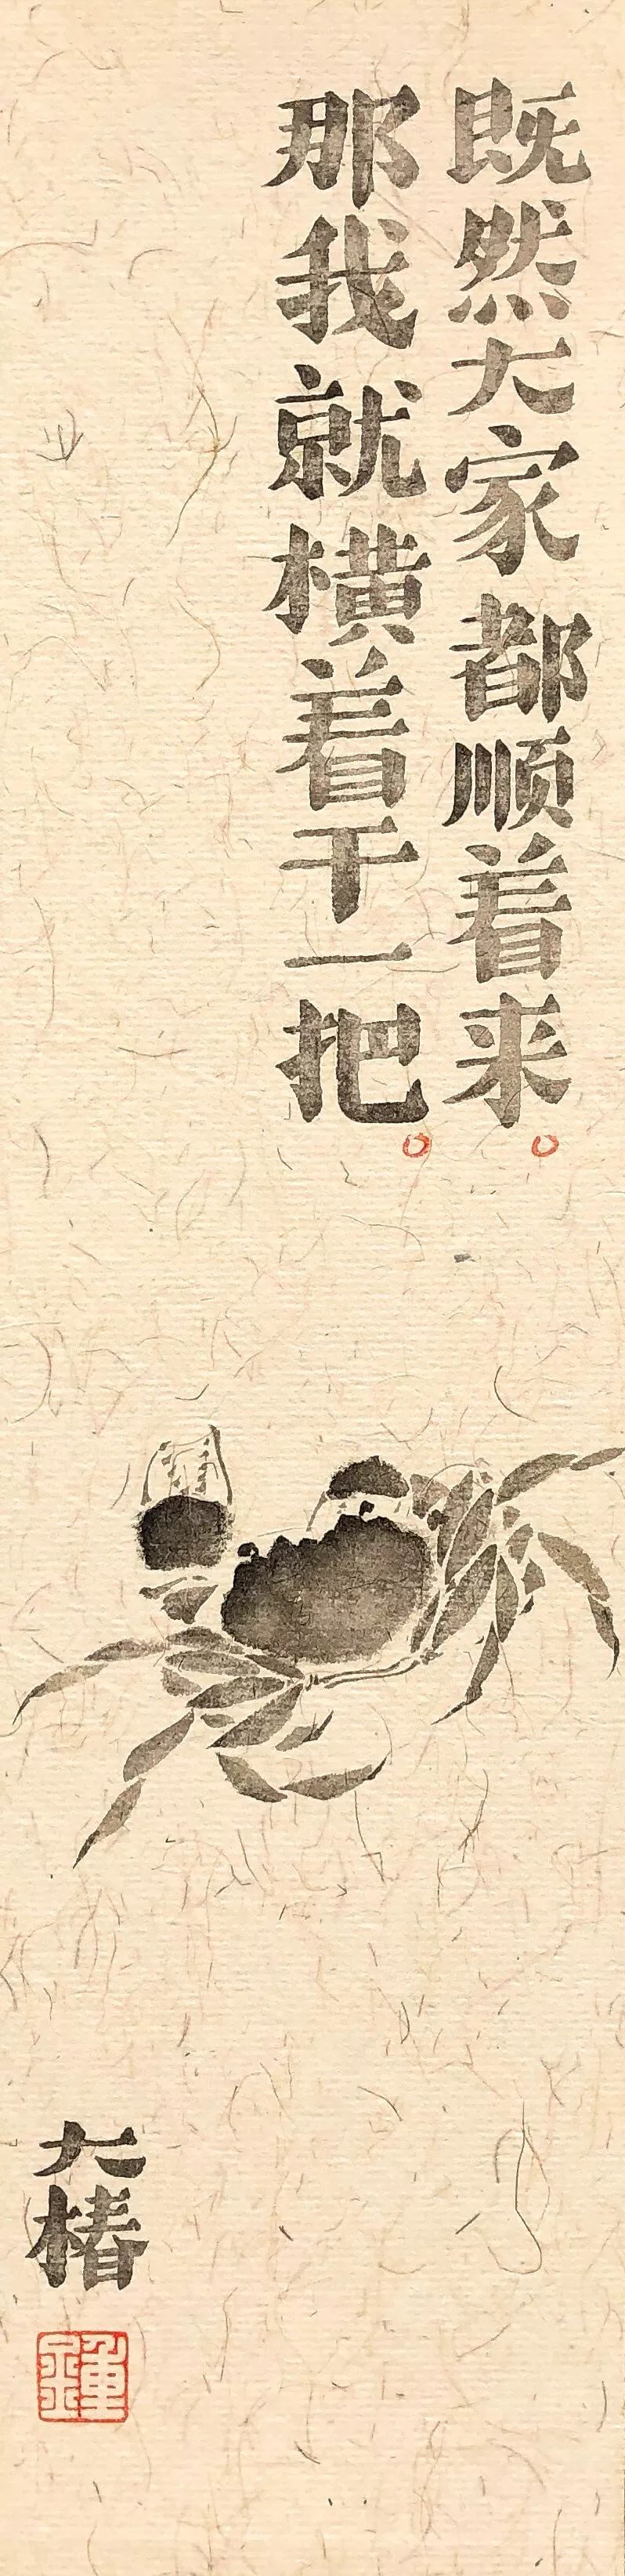 既然大家都顺着来。
那我就横着干一把。
大椿
鍾